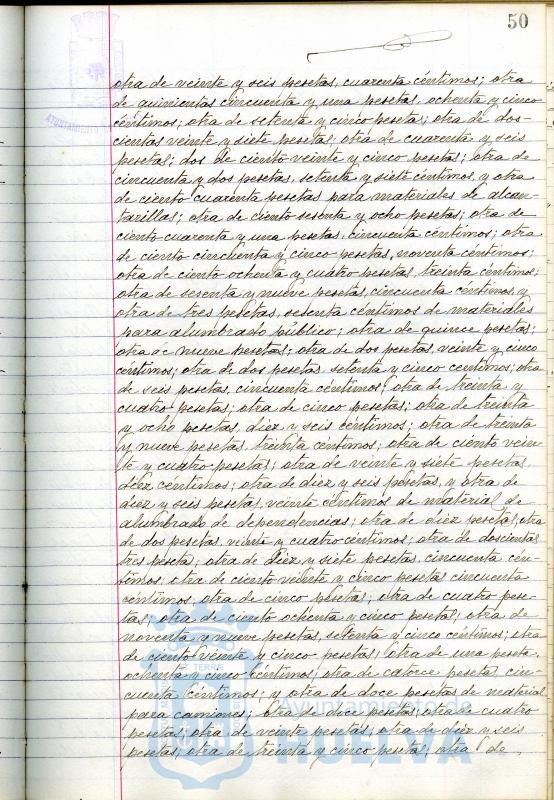 50
otra de veinte y seis pesetas, cuarenta céntimos; otra
de quinientas cincuenta y una pesetas, ochenta y cinco
céntimos; otra de setenta y cinco pesetas; otra de dos-
cientas veinte y siete pesetas; otra de cuarenta y seis
pesetas; dos de ciento veinte y cinco pesetas; otra de
cincuenta y dos pesetas, setenta y siete céntimos, y otra
de ciento cuarenta pesetas para materiales de alcan-
tarillas; otra de ciento sesenta y ocho pesetas; otra de
ciento cuarenta y una pesetas, cincuenta céntimos; otra
de ciento cincuenta y cinco pesetas, noventa céntimos;
otra de ciento ochenta y cuatro pesetas, treinta céntimos;
otra de sesenta y nueve pesetas, cincuenta céntimos, y
otra de tres pesetas, sesenta céntimos de materiales
para alumbrado público; otra de quince pesetas;
otra de nueve pesetas; otra de dos pesetas, veinte y cinco
céntimos; otra de dos pesetas, setenta y cinco céntimos; otra
de seis pesetas, cincuenta céntimos; otra de treinta y
cuatro pesetas; otra de cinco pesetas; otra de treinta
y ocho pesetas, diez y seis céntimos; otra de treinta
y nueve pesetas, treinta céntimos; otra de ciento vein-
te y cuatro pesetas; otra de veinte y siete pesetas,
diez céntimos; otra de diez y seis pesetas, y otra de
diez y seis pesetas, veinte céntimos de material de
alumbrado de dependencias; otra de diez pesetas; otra
de dos pesetas, veinte y cuatro céntimos; otra de doscientas
tres pesetas; otra de diez y siete pesetas, cincuenta cén-
timos; otra de ciento veinte y cinco pesetas cincuenta
céntimos; otra de cinco pesetas; otra de cuatro pese-
tas; otra de ciento ochenta y cinco pesetas; otra de
noventa y nueve pesetas, setenta y cinco céntimos; otra
de ciento veinte y cinco pesetas; otra de una peseta,
ochenta y cinco céntimos; otra de catorce pesetas, cin-
cuenta céntimos; y otra de doce pesetas de material
para camiones; otra de doce pesetas; otra de cuatro
pesetas; otra de veinte pesetas; otra de diez y seis
pesetas; otra de treinta y cinco pesetas; otra de
Ayuntamiento de
HUELVA